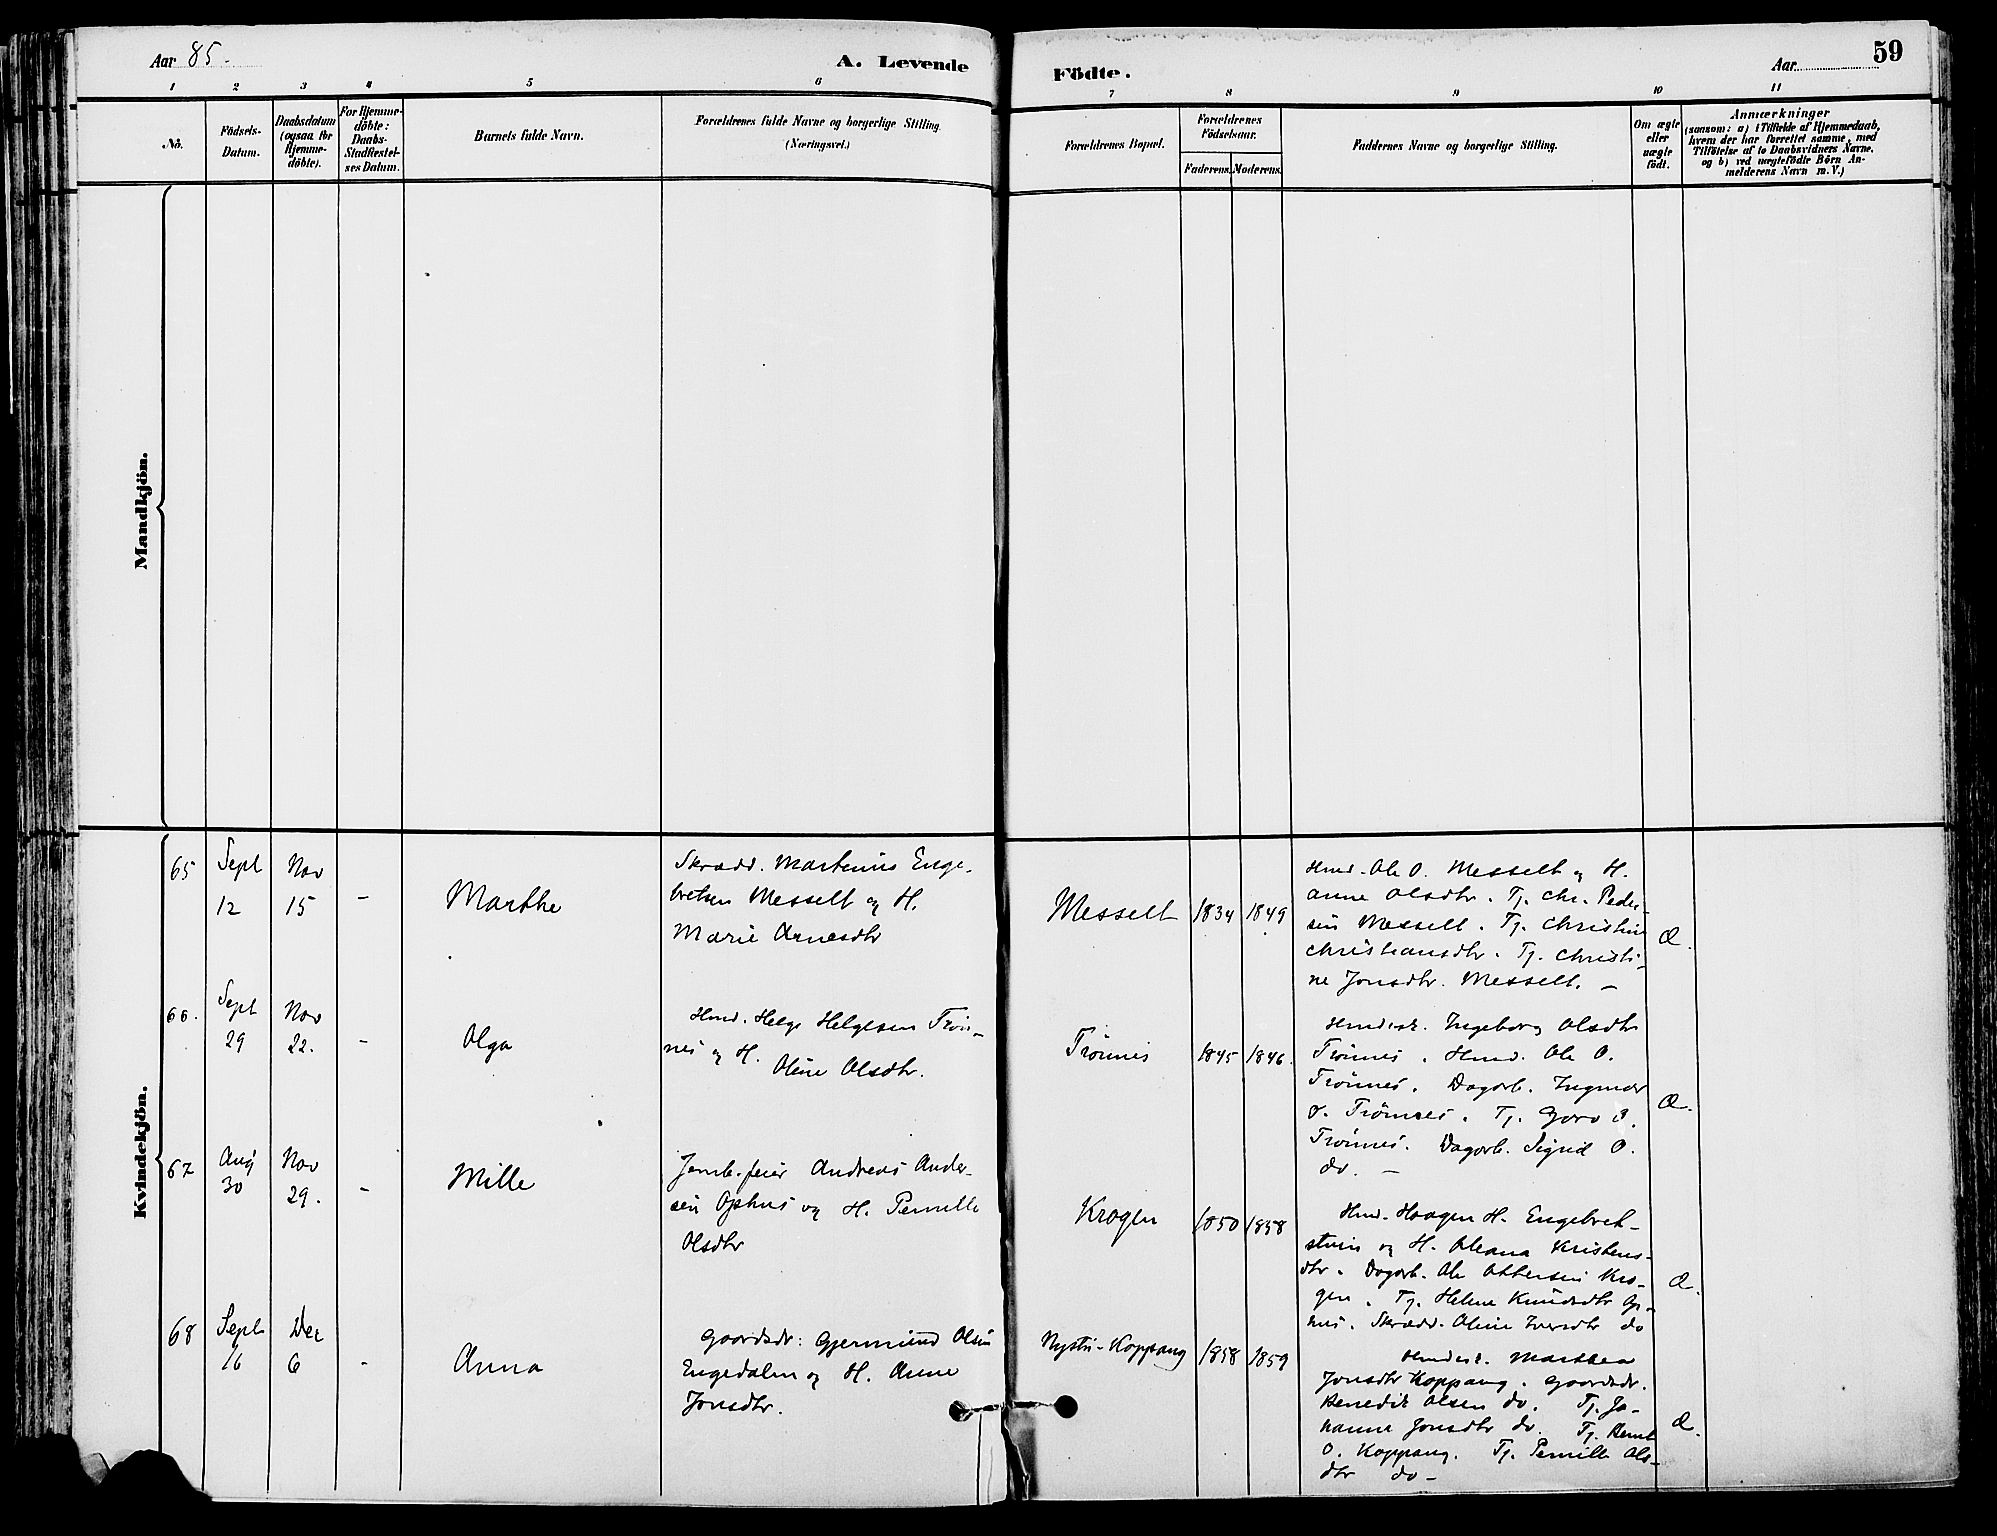 Aar 85.
A. Levende
Födte.
Aar
59
1 2 3 4 5 6 7 8 9 10 11
No.
Födsels-
Datum.
Daabsdatum
(ogsaa for
Hjemme-
döbte).
For Hjemme-
döbte:
Daabs-
Stadfæstel-
ses Datum.
Barnets fulde Navn.
Forældrenes fulde Navne og borgerlige Stilling.
(Næringsvei.)
Forældrenes Bopæl.
Forældrenes
Födselsaar.
Faderens. Moderens.
Faddernes Navne og borgerlige Stilling.
Om ægte
eller
uægte
födt.
Anmærkninger
(saasom: a) i Tilfælde af Hjemmedaab,
hvem der har forrettet samme, med
Tilföielse af to Daabsvidners Navne,
og b) ved uægtefödte Börn An-
melderens Navn m. V.)
Mandkjön.
Kvindekjön.
65
Sept
12
Nov
15
-
Marthe
Skrædd. Martinus Enge-
bretsen Messelt og H.
Marie Arnesdtr
Messelt
1834
1849
Hmd. Ole O. Messelt og H.
Anne Olsdtr. Tj. Chr. Peder-
sen Messelt. Tj. Christine
Christiansdtr. Tj. Christi-
ne Jonsdtr. Messelt. -
Æ.
66.
Sept
29
Nov
22.
-
Olga
Hmd. Helge Helgesen Trön-
nes og H.
Oline Olsdtr.
Trönnes
1845
1846.
Hmdsk. Ingeborg Olsdtr
Trönnes. Hmd. Ole O.
Trönnes. Dagarb. Ingmar
O. Trönnes. Tj. Goro O.
Trönnes. Dagarb. Sigrid O.
do. -
Æ.
67
Aug
30
Nov
29.
-
Mille
Jernb.feier Andreas Ander-
sen Ophus og H. Pernille
Olsdtr
Krogen
1850
1858
Hmd. Haagen H. Engebret-
stuen og H. Oleana Kristens-
dtr. Dagarb. Ole Ottersen Kro-
gen. Tj. Helene Knudsdtr Op-
hus. Skrædd. Oline Iversdtr do
Æ.
68
Sept
16
Dec
6
-
Anna
Gaardbr: Gjermund Olsen
Engedalen og H. Anne
Jonsdtr.
Nystu-Koppang
1858
1859
Hmdsk. Marthea
Jonsdtr Koppang. Gaardbr.
Benedik Olsen do. Tj. Jo-
hanne Jonsdtr do. Tj. Bernt
O. Koppang. Tj. Pernille Ols-
dtr do -
Æ.